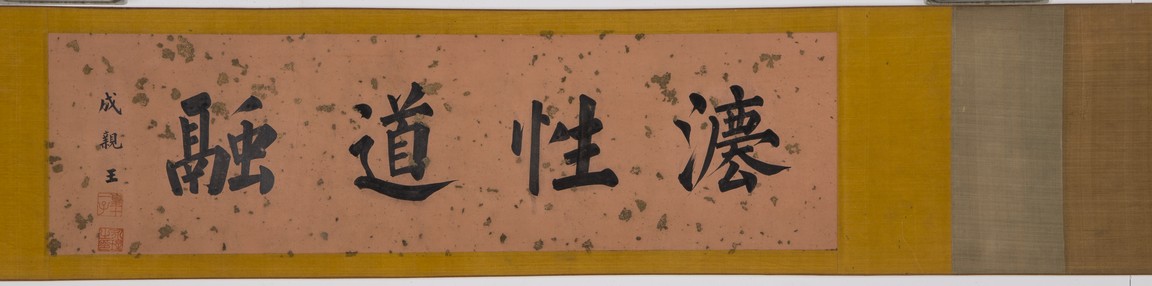 灋性道融
成親王